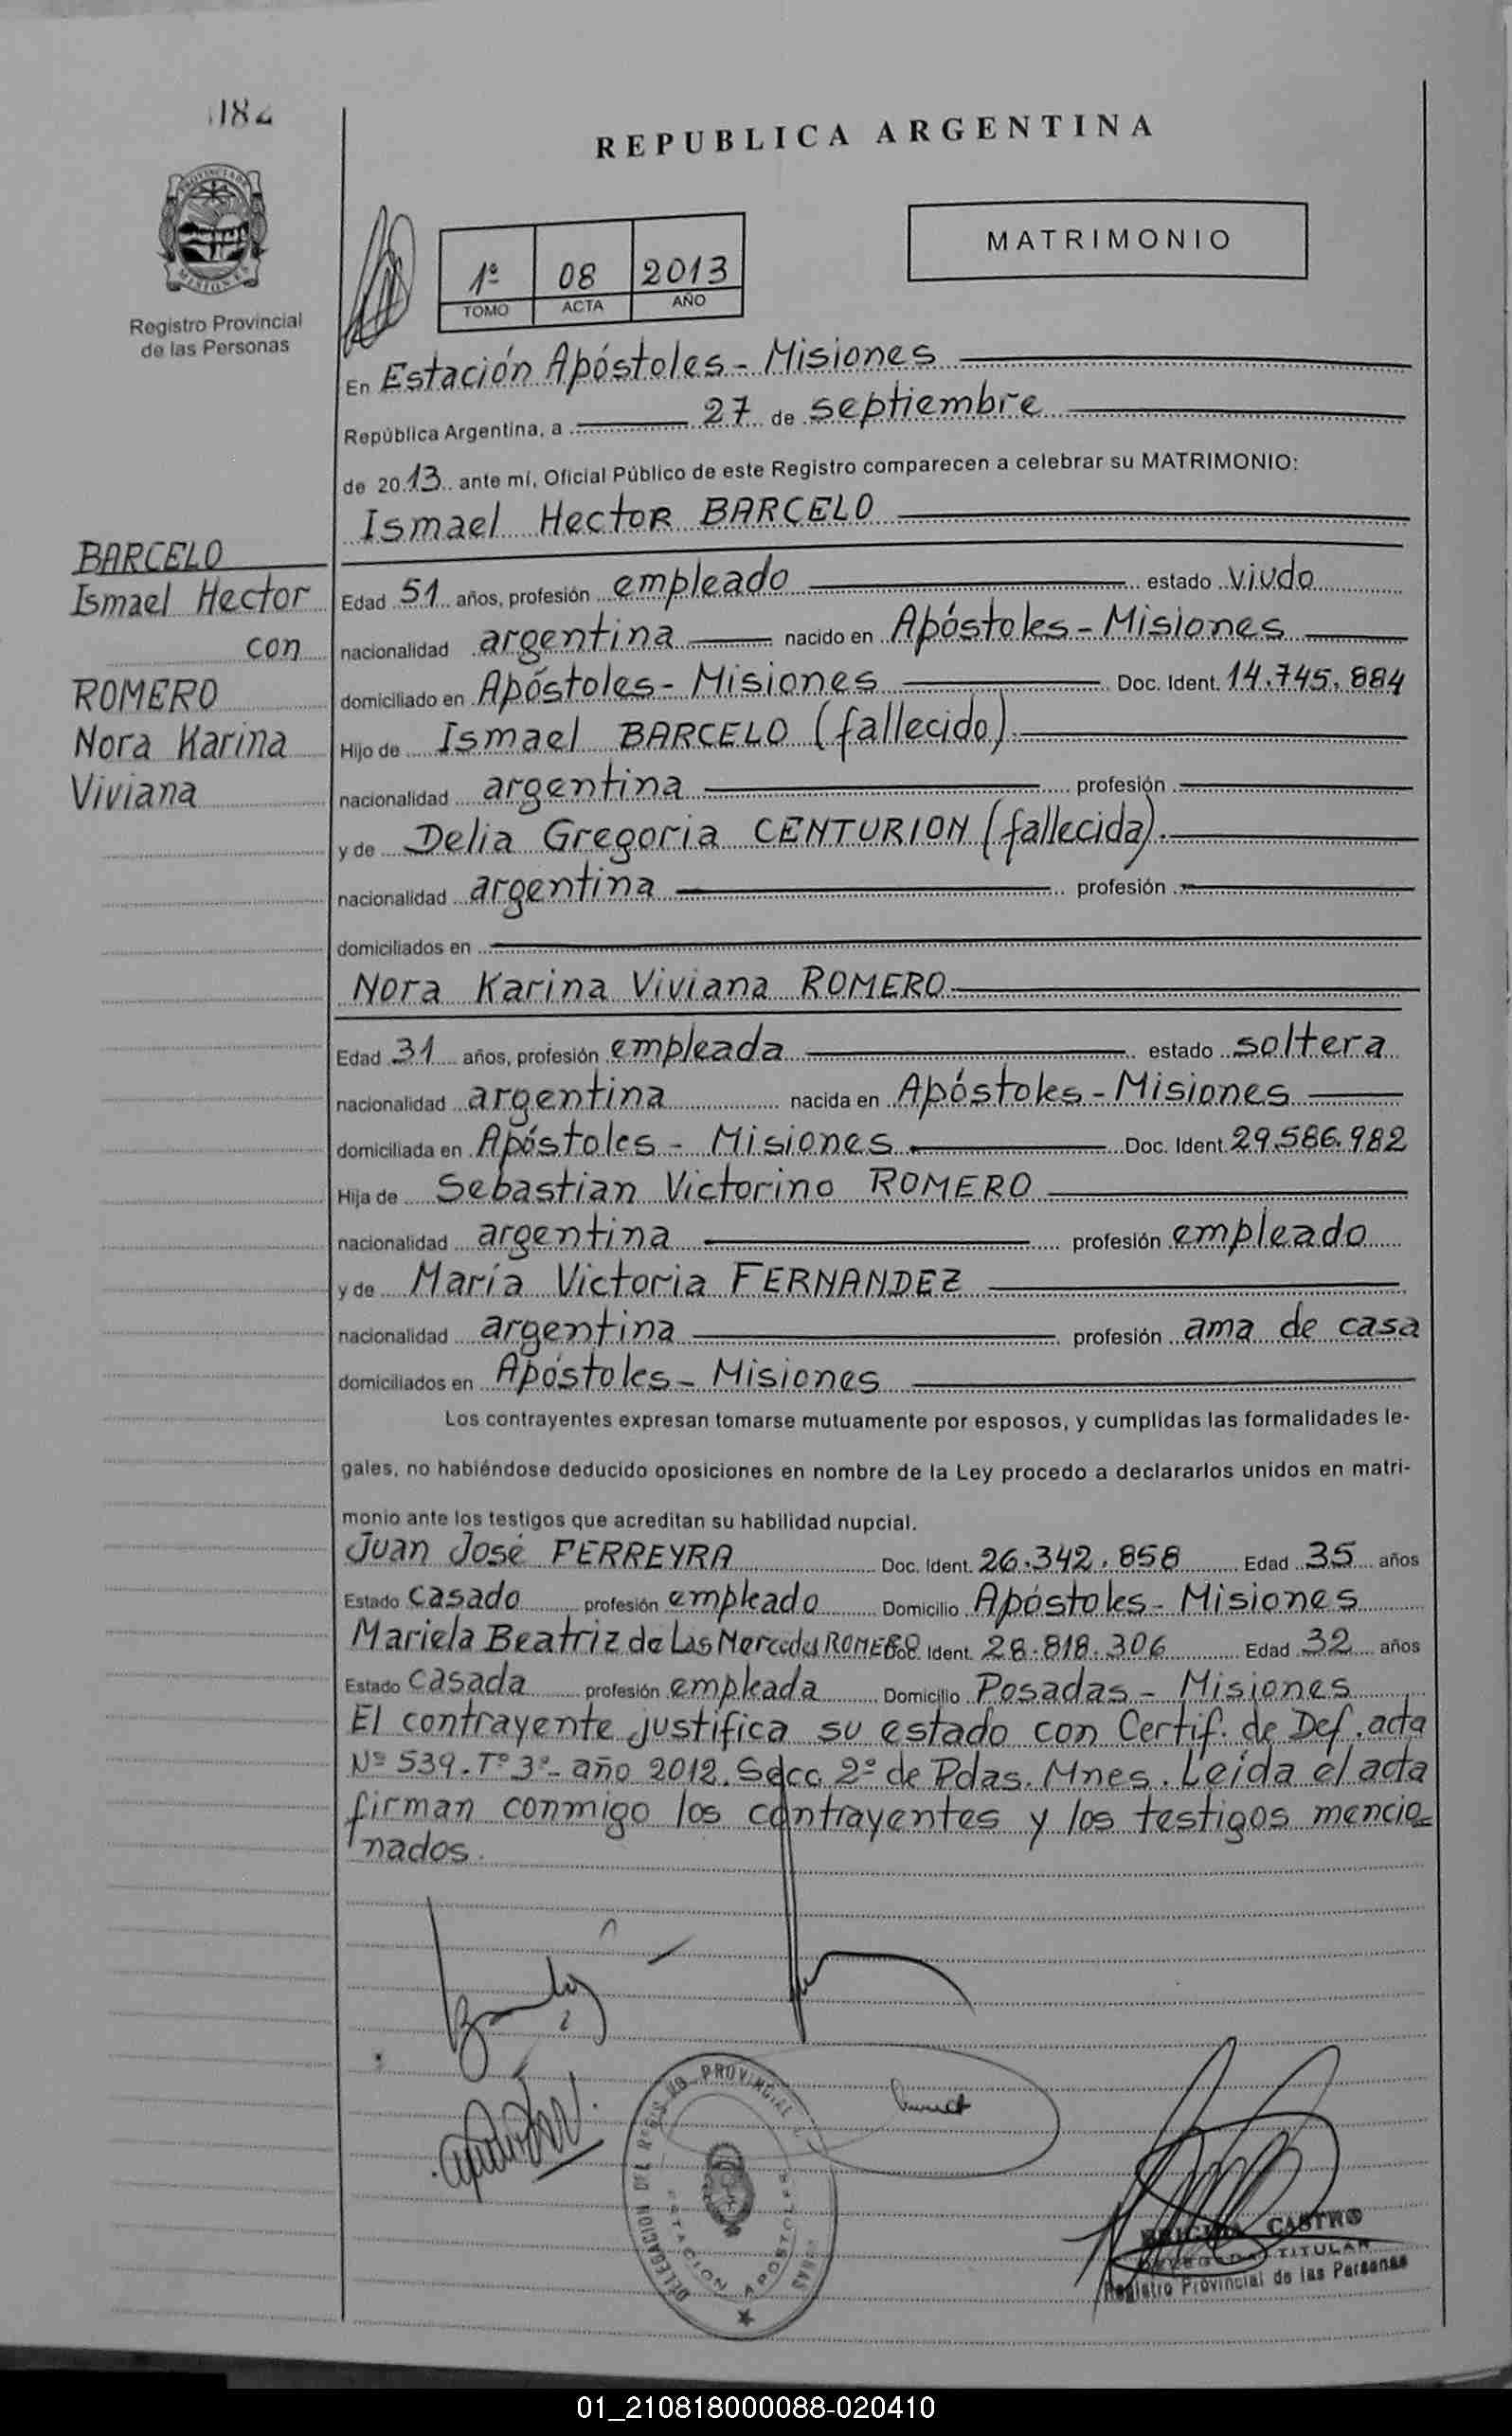 182
REPUBLICA ARGENTINA
PROVINCIA DE
MISIONES
Registro Provincial
de las Personas
1º 08 2013
TOMO ACTA AÑO
MATRIMONIO
En Estación Apóstoles - Misiones
República Argentina, a 27 de septiembre
de 2013 ante mí, Oficial Público de este Registro comparecen a celebrar su MATRIMONIO:
Ismael Hector BARCELO
BARCELO
Ismael Hector
con
ROMERO
Nora Karina
Viviana
Edad 51 años, profesión empleado estado viudo
nacionalidad argentina nacido en Apóstoles - Misiones
domiciliado en Apóstoles - Misiones Doc. Ident. 14.745.884
Hijo de Ismael BARCELO (fallecido).
nacionalidad argentina profesión
y de Delia Gregoria CENTURION (fallecida).
nacionalidad argentina profesión
domiciliados en
Nora Karina Viviana ROMERO
Edad 31 años, profesión empleada estado soltera
nacionalidad argentina nacida en Apóstoles - Misiones
domiciliada en Apóstoles - Misiones Doc. Ident. 29.586.982
Hija de Sebastian Victorino ROMERO
nacionalidad argentina profesión empleado
y de María Victoria FERNANDEZ
nacionalidad argentina profesión ama de casa
domiciliados en Apóstoles - Misiones
Los contrayentes expresan tomarse mutuamente por esposos, y cumplidas las formalidades le-
gales, no habiéndose deducido oposiciones en nombre de la Ley procedo a declararlos unidos en matri-
monio ante los testigos que acreditan su habilidad nupcial.
Juan José FERREYRA Doc. Ident. 26.342.858 Edad 35 años
Estado casado profesión empleado Domicilio Apóstoles - Misiones
Mariela Beatriz de Las Mercedes ROMERO Doc. Ident. 28.818.306 Edad 32 años
Estado casada profesión empleada Domicilio Posadas - Misiones
El contrayente justifica su estado con Certif. de Def. acta
Nº 539. Tº 3º - año 2012. Secc. 2º de Pdas. Mnes. Leída el acta
firman conmigo los contrayentes y los testigos mencio-
nados.
DELEGACION DEL PROVINCIAL
ESTACION APOSTOLES
BRIGIDA CASTRO
DELEGADA TITULAR
Registro Provincial de las Personas
01_210818000088-020410